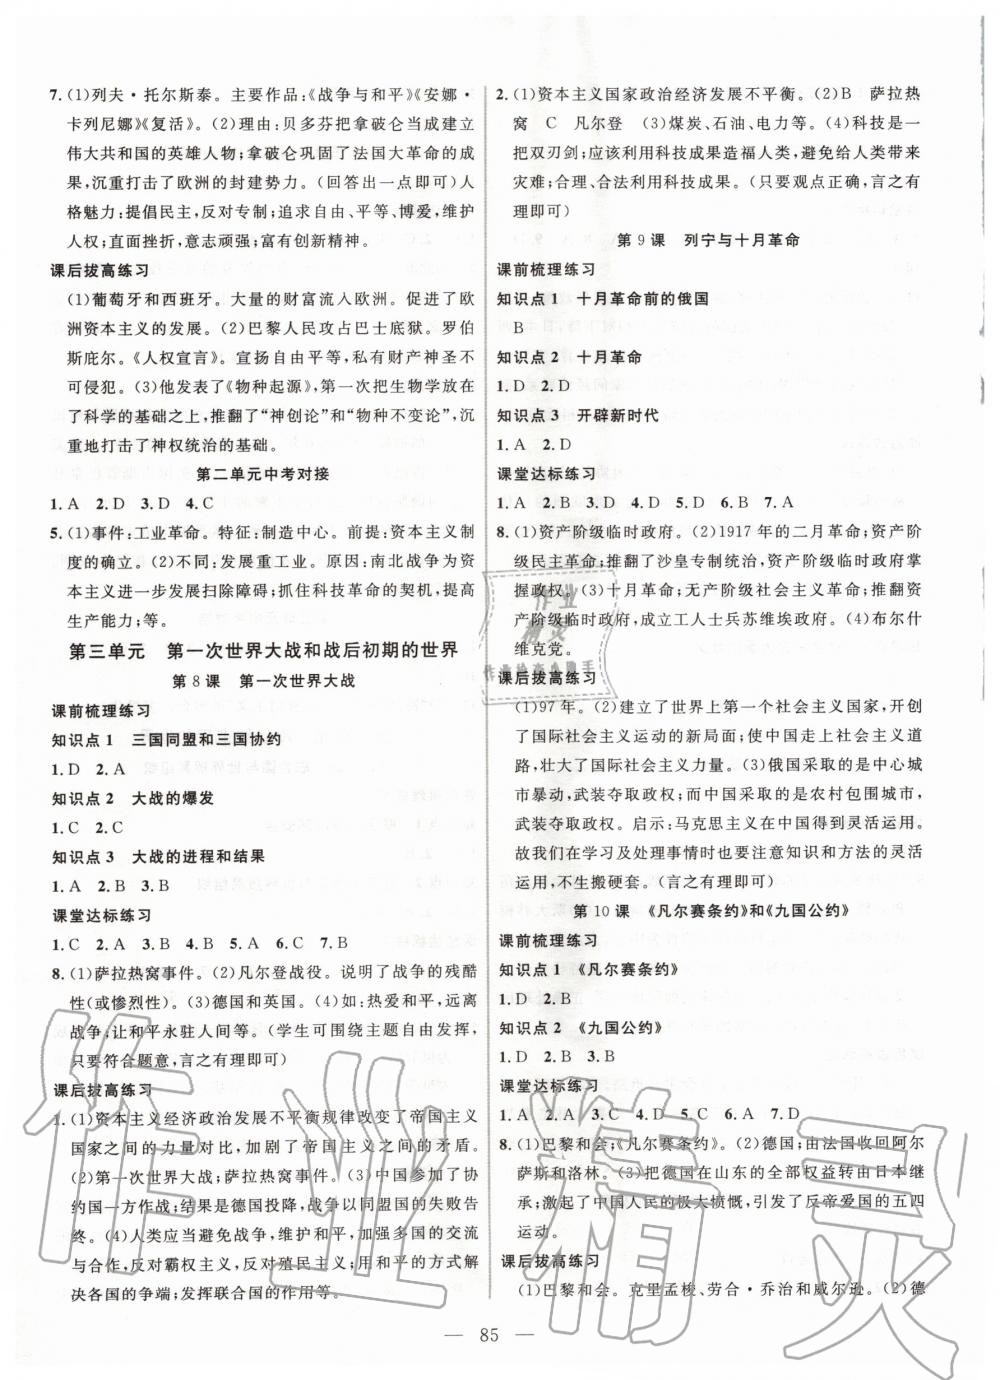 7.(1)列夫·托尔斯泰。主要作品:《战争与和平》《安娜·
卡列尼娜》《复活》。(2)理由:贝多芬把拿破仑当成建立
伟大共和国的英雄人物;拿破仑巩固了法国大革命的成
果,沉重打击了欧洲的封建势力。(回答出一点即可)人
格魅力:提倡民主,反对专制;追求自由、平等、博爱,维护
人权;直面挫折,意志顽强;富有创新精神。
课后拔高练习
(1)葡萄牙和西班牙。大量的财富流入欧洲。促进了欧
洲资本主义的发展。(2)巴黎人民攻占巴士底狱。罗伯
斯庇尔。《人权宣言》。宣扬自由平等,私有财产神圣不
可侵犯。(3)他发表了《物种起源》,第一次把生物学放在
了科学的基础之上,推翻了“神创论”和“物种不变论”,沉
重地打击了神权统治的基础。
第二单元中考对接
1.A 2.D 3.D 4.C
5.(1)事件:工业革命。特征:制造中心。前提:资本主义制
度的确立。(2)不同:发展重工业。原因:南北战争为资
本主义进一步发展扫除障碍;抓住科技革命的契机,提高
生产能力;等。
第三单元 第一次世界大战和战后初期的世界
第8课 第一次世界大战
课前梳理练习
知识点1 三国同盟和三国协约
1.D 2.A
知识点2 大战的爆发
1.C 2.C
知识点3 大战的进程和结果
1.A 2.B 3.B
课堂达标练习
1.C 2.A 3.B 4.B 5.A 6.C 7.B
8.(1)萨拉热窝事件。(2)凡尔登战役。说明了战争的残酷
性(或惨烈性)。(3)德国和英国。(4)如:热爱和平,远离
战争;让和平永驻人间等。(学生可围绕主题自由发挥,
只要符合题意,言之有理即可)
课后拔高练习
1.(1)资本主义经济政治发展不平衡规律改变了帝国主义
国家之间的力量对比,加剧了帝国主义之间的矛盾。
(2)第一次世界大战;萨拉热窝事件。(3)中国参加了协
约国一方作战;结果是德国投降,战争以同盟国的失败告
终。(4)人类应当避免战争,维护和平;加强各国的交流
与合作,反对霸权主义,反对恐怖主义;用和平的方式解
决各国的争端;发挥联合国的作用等。
2.(1)资本主义国家政治经济发展不平衡。(2)B 萨拉热
窝 C 凡尔登 (3)煤炭、石油、电力等。(4)科技是一
把双刃剑;应该利用科技成果造福人类,避免给人类带来
灾难;合理、合法利用科技成果。(只要观点正确,言之有
理即可)
第9课 列宁与十月革命
课前梳理练习
知识点1 十月革命前的俄国
B
知识点2 十月革命
1.D 2.D
知识点3 开辟新时代
1.A 2.D
课堂达标练习
1.A 2.B 3.D 4.D 5.D 6.B 7.A
8.(1)资产阶级临时政府。(2)1917年的二月革命;资产阶
级民主革命;推翻了沙皇专制统治,资产阶级临时政府掌
握政权。(3)十月革命;无产阶级社会主义革命;推翻资
产阶级临时政府,成立工人士兵苏维埃政府。(4)布尔什
维克党。
课后拔高练习
(1)97年。(2)建立了世界上第一个社会主义国家,开创
了国际社会主义运动的新局面;使中国走上社会主义道
路,壮大了国际社会主义力量。(3)俄国采取的是中心城
市暴动,武装夺取政权;而中国采取的是农村包围城市,
武装夺取政权。启示:马克思主义在中国得到灵活运用。
故我们在学习及处理事情时也要注意知识和方法的灵活
运用,不生搬硬套。(言之有理即可)
第10课 《凡尔赛条约》和《九国公约》
课前梳理练习
知识点1 《凡尔赛条约》
1.D 2.B
知识点2 《九国公约》
1.D 2.B 3.B
课堂达标练习
1.A 2.A 3.C 4.C 5.D 6.A 7.D
8.(1)巴黎和会;《凡尔赛条约》。(2)德国;由法国收回阿尔
萨斯和洛林。(3)把德国在山东的全部权益转由日本继
承;激起了中国人民的极大愤慨,引发了反帝爱国的五四
运动。
课后拔高练习
(1)巴黎和会。克里孟梭、劳合·乔治和威尔逊。(2)德
— 85 —
作业精灵
作业精灵